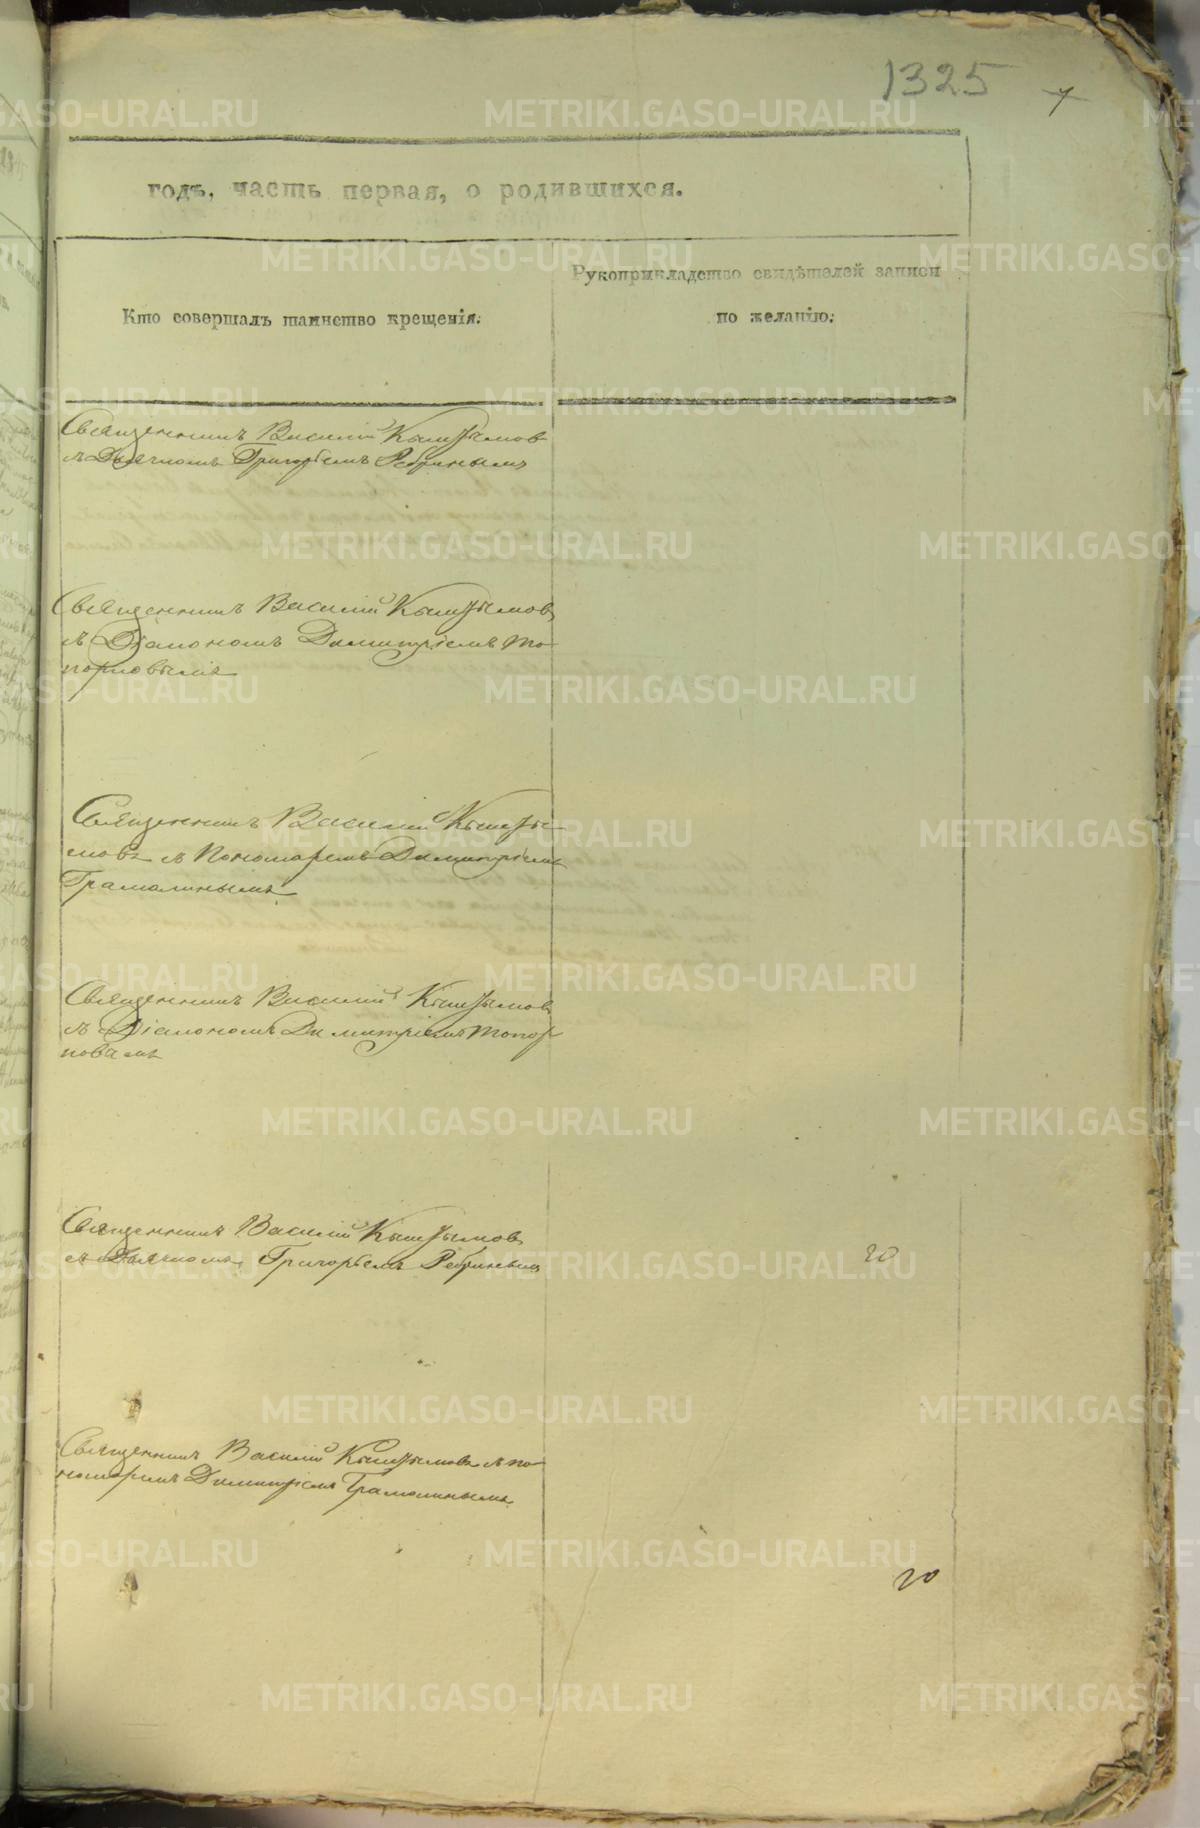 1325
7
годъ, часть первая, о родившихся.
Кто совершалъ таинство крещенія:
Рукоприкладство свидѣтелей записи
по желанію:
Священникъ Василій Кыштымов
съ Дьячкомъ Григорьемъ Ребринымъ
Священникъ Василій Кыштымов
съ Діакономъ Димитріемъ То-
порковымъ
Священникъ Василій Кышты-
мовъ съ Пономаремъ Димитріемъ
Грамолинымъ
Священникъ Василій Кыштымов
съ Діакономъ Димитріемъ Топор
ковымъ
Священникъ Василій Кыштымов
съ Дьячкомъ Григорьемъ Ребринымъ
20
Священникъ Василій Кыштымовъ съ по-
номаремъ Димитріемъ Грамолинымъ
20
METRIKI.GASO-URAL.RU